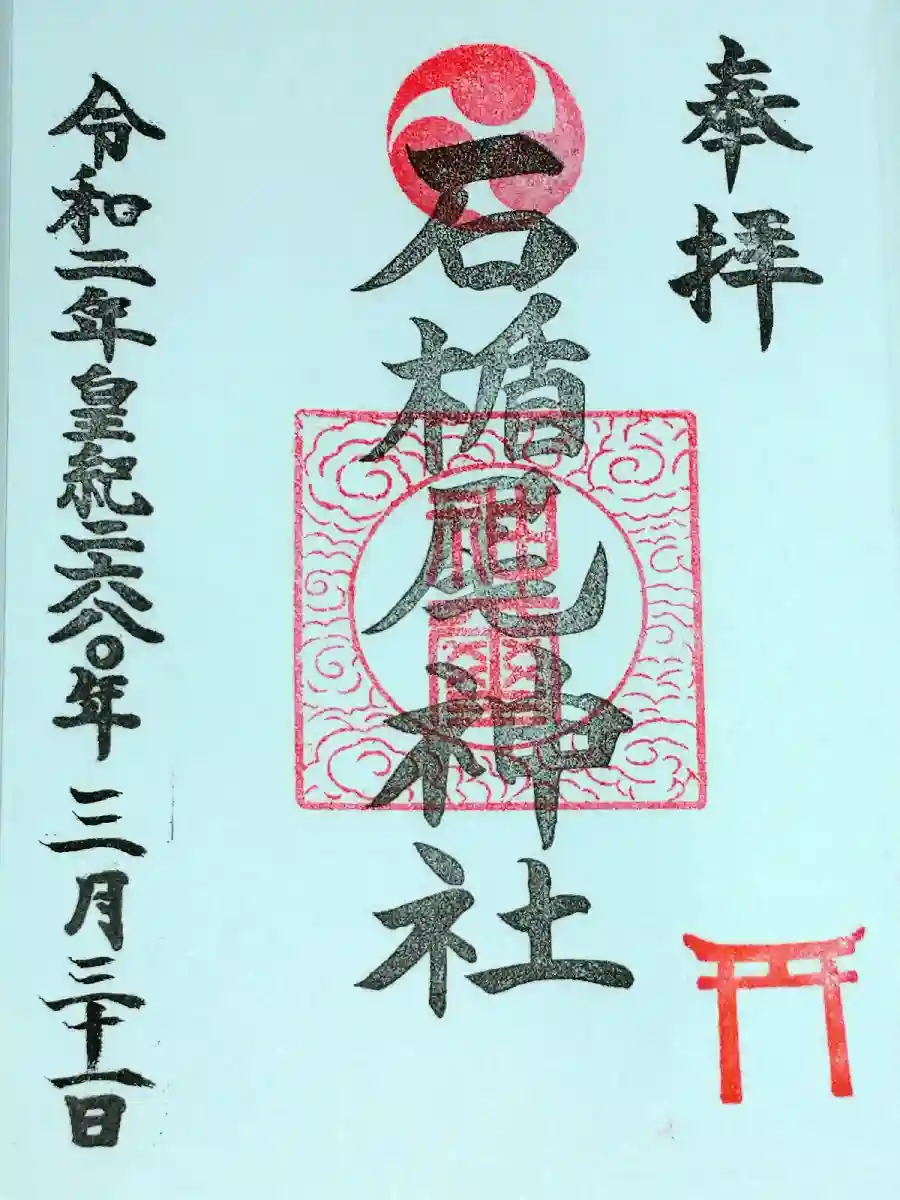 奉拝
石楯尾神社
令和二年皇紀二六八〇年 三月三十一日